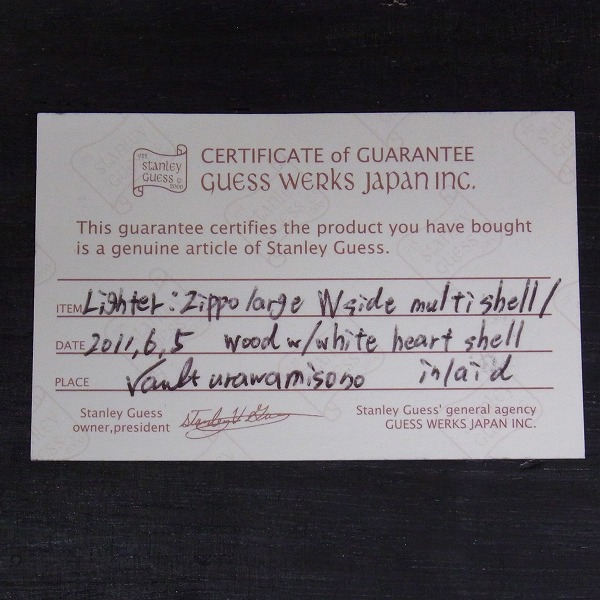 THE
Stanley
GUESS ©
2000
CERTIFICATE of GUARANTEE
GUESS WERKS JAPAN INC.
This guarantee certifies the product you have bought
is a genuine article of Stanley Guess.
ITEM Lighter: Zippo large Wside multi shell/
DATE 2011,6,5 wood w/white heart shell
PLACE Vault urawamisono inlaid
Stanley Guess
owner,president
Stanley Guess' general agency
GUESS WERKS JAPAN INC.